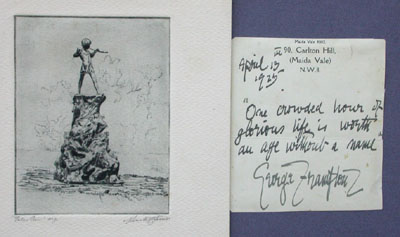 Maida Vale
90, Carlton Hill,
(Maida Vale)
N.W.8.
April 15
1925
"One crowded hour of
glorious life is worth
an age without a name"
George Frampton